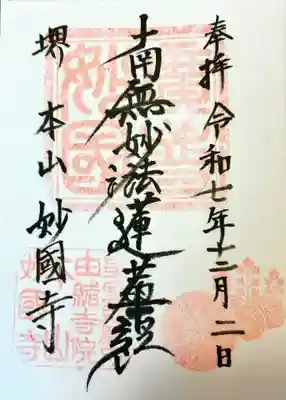 奉拝 令和七年十二月二日
南無妙法蓮華経
堺 本山 妙國寺
由緒寺院
妙國寺